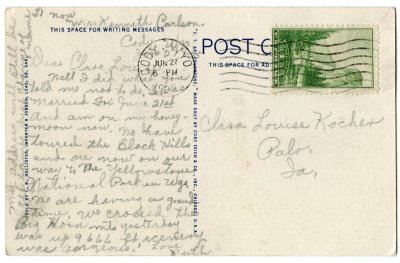 now
Mrs Kenneth Carlson.
THIS SPACE FOR WRITING MESSAGES
Cody,
Dear Clara Louise
Well I did what
told me not to do,
Married Fri June 21st
And am on my honey-
moon now. We have
toured the Black Hills
and are now on our
way to the Yellowstone
National Park in Wyo.
We are having a grand
time, we crossed the
Big Horn mts yesterday
was up 9666 ft scenery
was gorgeous. Love
Ruth
My address will still be
POST CARD
THIS SPACE FOR AD
CODY
JUN 27
6 PM
WYO
Clara Louise Kocher
Palo,
Ia.